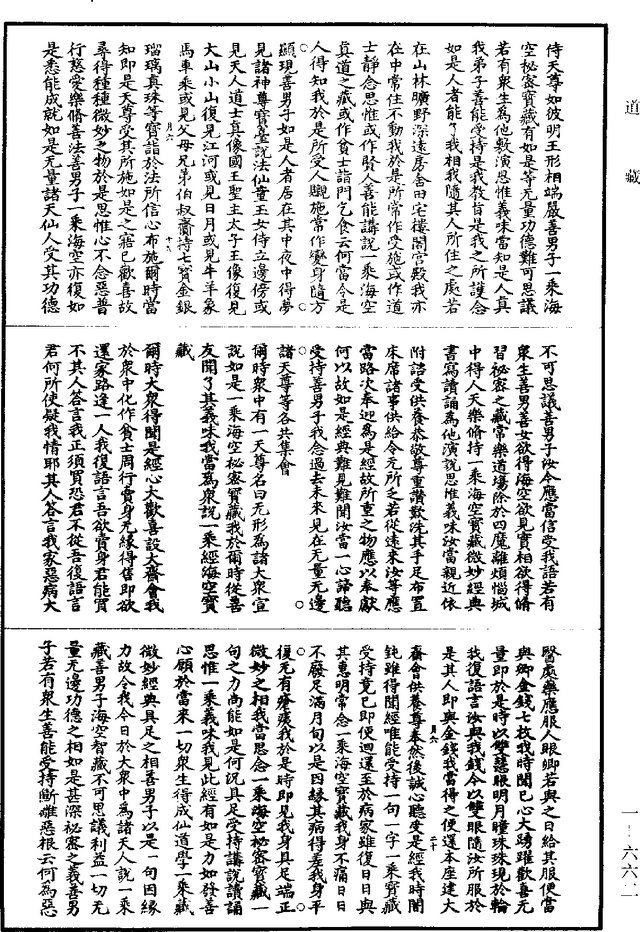 道藏
侍天尊如彼明王形相端嚴善男子一乘海
空秘密寶藏有如是等无量功德難可思議
若有眾生為他敷演思惟義味當知是人真
我弟子善能受持是我教旨是我之所護念
如是人者能了我相我隨其人所住之處若
在山林曠野深遠房舍田宅樓閣宮殿我亦
在中常住不動我於是所常作受施或作道
士靜念思惟或作賢人善能講說一乘海空
真道之藏或作貧士詣門乞食云何當令是
人得知我於是所受人䞋施常作變身隨方
顯現善男子如是人者居在其中夜中得夢
見諸神尊寶臺說法仙童玉女侍立邊傍或
見天人道士真像國王聖主太子王像復見
大山小山復見江河或見日月或見牛羊象
馬車乘或見父母兄弟伯叔齎持七寶金銀
瑠璃真珠等寶詣於法所信心布施爾時當
知即是天尊受其所施如是之寤已歡喜故
尋得種種微妙之物於是思惟心不念惡普
行慈愛樂脩善法善男子一乘海空亦復如
是悉能成就如是无量諸天仙人受其功德
不可思議善男子汝今應當信受我語若有
眾生善男善女欲得海空欲見實相欲得脩
習秘密之藏常樂道場除於四魔離煩惱城
中得人天樂脩持一乘海空寶藏微妙經典
書寫讀誦為他演說思惟義味汝當親近依
附諮受供養恭敬尊重讚歎洗其手足布置
床席諸事供給令无所乏若從遠來汝等應
當路次奉迎為是經故所重之物應以奉獻
何以故如是經典難見難聞汝當一心諦聽
受持善男子我念過去未來見在无量无邊
諸天尊等各共集會
爾時眾中有一天尊名曰无形為諸大眾宣
說如是一乘海空秘密寶藏我於爾時從善
友聞了其義味我當為眾說一乘經海空寶
藏
爾時大眾得聞是經心大歡喜設大齋會我
於眾中化作貧士周行賣身无緣得售即欲
還家路逢一人我復語言吾欲賣身君能買
不其人答言我正須買恐君不從吾復語言
君何所使疑我情耶其人答言我家惡病大
醫處藥應服人眼卿若與之日給其服便當
與卿金錢七枚我時聞已心大踴躍歡喜无
量即於是時以雙慧眼明月瞳珠珠現於輪
我復語言汝與我錢今以雙眼隨汝所服於
是其人即與金錢我當得之便還本座建大
齋會供養尊泰然後誠心聽受是經我時闇
鈍雖得聞經唯能受持一句一字一乘寶藏
受持竟已即便迴還至於病家雖復日日與
其惠明常念一乘海空寶藏我身不痛日日
不廢足滿月旬以是因緣其病得差我身平
復无有瘡瘢我於是時即見我身具足端正
微妙之相我當思念一乘海空秘密寶藏一
句之力尚能如是何況具足受持講說讀誦
思惟一乘義味我見此經有如是力如發善
心願於當來一切眾生得成仙道學一乘藏
微妙經典具足之相善男子以是一句因緣
力故令我今日於大眾中為諸天人說一乘
藏善男子海空智藏不可思議利益一切无
量无邊功德之相如是甚深秘密之義善男
子若有眾生善能受持斷離惡根云何為惡
月六 十九
月六 二十
一－六六二